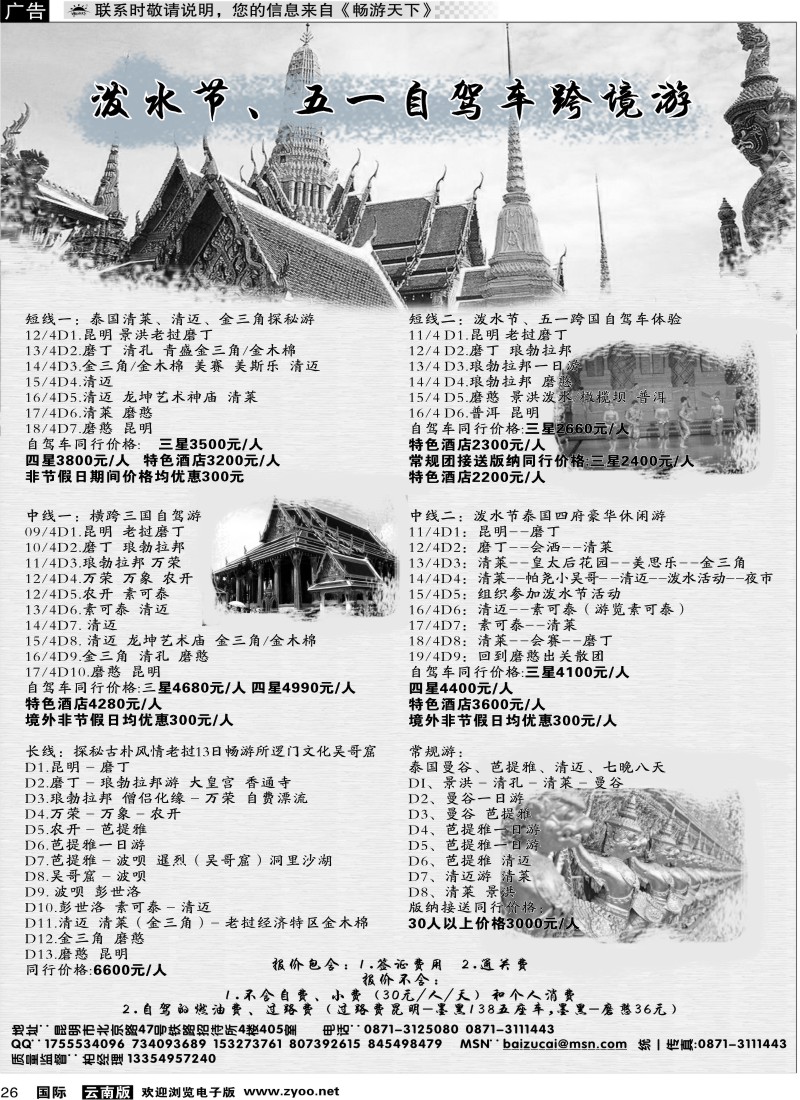 广告
联系时敬请说明，您的信息来自《畅游天下》
泼水节、五一自驾车跨境游
短线一：泰国清莱、清迈、金三角探秘游
12/4D1.昆明 景洪老挝磨丁
13/4D2.磨丁 清孔 青盛金三角/金木棉
14/4D3.金三角/金木棉 美赛 美斯乐 清迈
15/4D4.清迈
16/4D5.清迈 龙坤艺术神庙 清莱
17/4D6.清莱 磨憨
18/4D7.磨憨 昆明
自驾车同行价格： 三星3500元/人
四星3800元/人 特色酒店3200元/人
非节假日期间价格均优惠300元
短线二：泼水节、五一跨国自驾车体验
11/4 D1.昆明 老挝磨丁
12/4 D2.磨丁 琅勃拉邦
13/4 D3.琅勃拉邦一日游
14/4 D4.琅勃拉邦 磨憨
15/4 D5.磨憨 景洪泼水 橄榄坝 普洱
16/4 D6.普洱 昆明
自驾车同行价格:三星2660元/人
特色酒店2300元/人
常规团接送版纳同行价格:三星2400元/人
特色酒店2200元/人
中线一：横跨三国自驾游
09/4D1.昆明 老挝磨丁
10/4D2.磨丁 琅勃拉邦
11/4D3.琅勃拉邦 万荣
12/4D4.万荣 万象 农开
12/4D5.农开 素可泰
13/4D6.素可泰 清迈
14/4D7.清迈
15/4D8.清迈 龙坤艺术庙 金三角/金木棉
16/4D9.金三角 清孔 磨憨
17/4D10.磨憨 昆明
自驾车同行价格:三星4680元/人 四星4990元/人
特色酒店4280元/人
境外非节假日均优惠300元/人
中线二：泼水节泰国四府豪华休闲游
11/4D1：昆明--磨丁
12/4D2：磨丁--会洒--清莱
13/4D3：清莱--皇太后花园--美思乐--金三角
14/4D4：清莱--帕尧小吴哥--清迈--泼水活动--夜市
15/4D5：组织参加泼水节活动
16/4D6：清迈--素可泰（游览素可泰）
17/4D7：素可泰--清莱
18/4D8：清莱--会赛--磨丁
19/4D9：回到磨憨出关散团
自驾车同行价格:三星4100元/人
四星4400元/人
特色酒店3600元/人
境外非节假日均优惠300元/人
长线：探秘古朴风情老挝13日畅游所逻门文化吴哥窟
D1.昆明－磨丁
D2.磨丁－琅勃拉邦游 大皇宫 香通寺
D3.琅勃拉邦 僧侣化缘－万荣 自费漂流
D4.万荣－万象－农开
D5.农开－芭提雅
D6.芭提雅一日游
D7.芭提雅－波呗 暹烈（吴哥窟）洞里沙湖
D8.吴哥窟－波呗
D9.波呗 彭世洛
D10.彭世洛 素可泰－清迈
D11.清迈 清莱（金三角）－老挝经济特区金木棉
D12.金三角 磨憨
D13.磨憨 昆明
同行价格:6600元/人
常规游：
泰国曼谷、芭提雅、清迈、七晚八天
D1、景洪－清孔－清莱－曼谷
D2、曼谷一日游
D3、曼谷 芭提雅
D4、芭提雅一日游
D5、芭提雅一日游
D6、芭提雅 清迈
D7、清迈游 清莱
D8、清莱 景洪
版纳接送同行价格：
30人以上价格3000元/人
报价包含：1.签证费用 2.通关费
报价不含：
1.不含自费、小费（30元/人/天）和个人消费
2.自驾的燃油费、过路费（过路费昆明—墨黑138五座车,墨黑—磨憨36元）
地址：昆明市北京路47号铁路招待所4楼405室 电话：0871-3125080 0871-3111443
QQ：1755534096 734093689 153273761 807392615 845498479 MSN：baizucai@msn.com 统|传真:0871-3111443
质量监督：柏经理 13354957240
26 国际 云南版 欢迎浏览电子版 www.zyoo.net